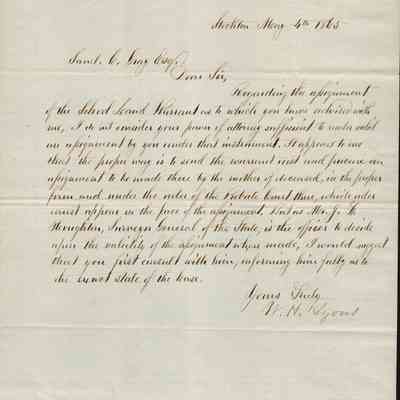 Stockton May 4th 1865
Saml. C. Gray Esq.
Dear Sir,
Regarding the assignment
of the School Land Warrant as to which you have advised with
me, I do not consider your power of attorney sufficient to make valid
an assignment by you under that instrument. It appears to me
that the proper way is to send the warrant east and procure an
assignment to be made there by the mother of deceased, in the proper
form and under the order of the Probate Court there, which order
must appear in the face of the assignment. But as Mr. J. F.
Houghton, Surveyor General of the State, is the officer to decide
upon the validity of the assignment when made, I would suggest
that you first consult with him, informing him fully as to
the exact state of the case.
Yours Truly
W. H. Lyons